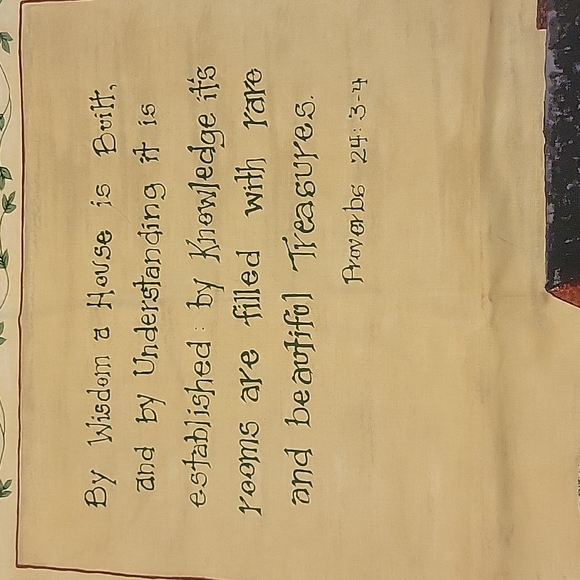 By Wisdom a House is Built,
and by Understanding it is
established : by Knowledge it's
rooms are filled with rare
and beautiful Treasures.
Proverbs 24:3-4